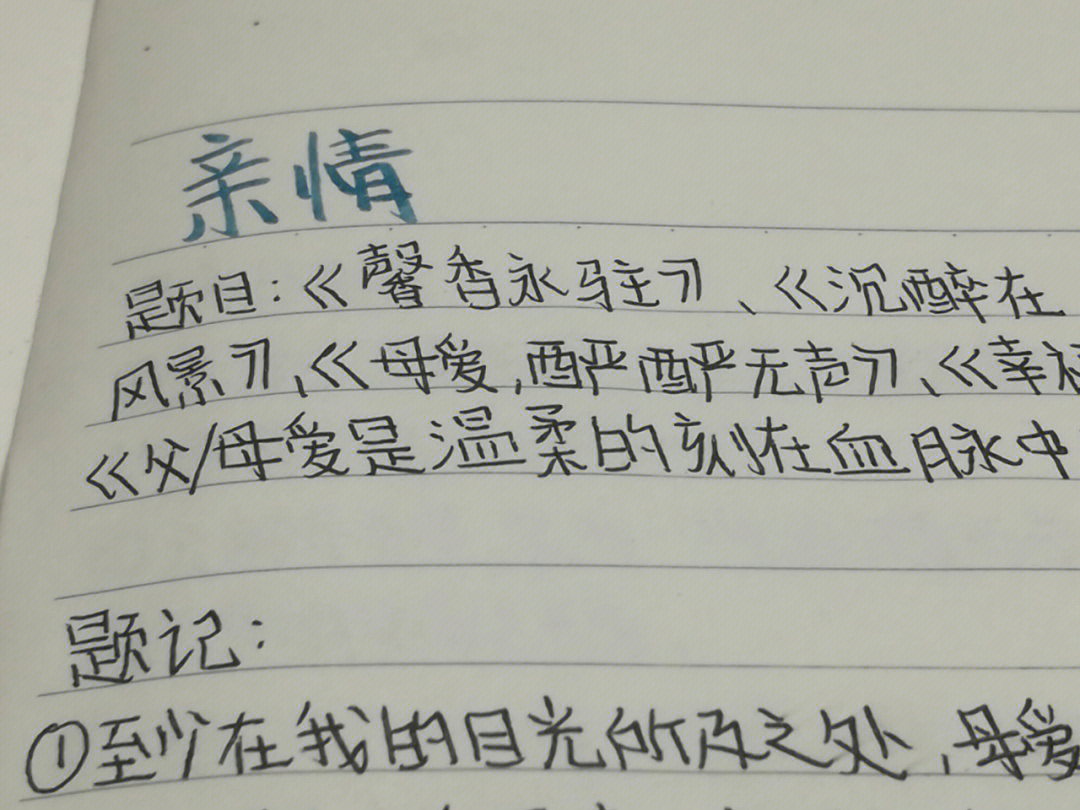 亲情
题目:《馨香永驻》、《沉醉在
风景》、《母爱,酽酽无声》、《幸福
《父/母爱是温柔的刻在血脉中
题记:
①至少在我的目光所及之处,母爱